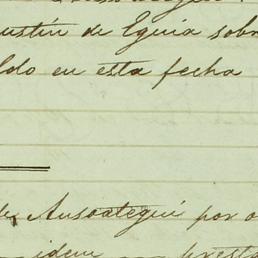 ustín de Eguía sobr
ldo en esta fecha
de Ansoategui por o
idem presta